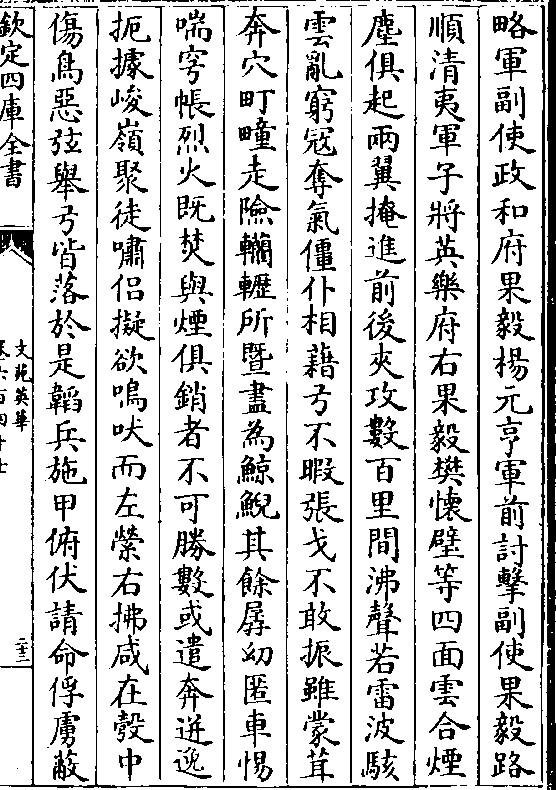 略軍副使政和府果毅楊元亨軍前討擊副使果毅路
順清夷軍子將英樂府右果毅樊懷璧等四面雲合煙
塵俱起兩翼掩進前後夾攻數百里間沸聲若雷波駭
雲亂窮寇奪氣僵仆相藉弓不暇張戈不敢振雖蒙茸
奔穴町畽走險轥轣所暨盡為鯨鯢其餘孱幼匿車惕
喘穹帳烈火既焚與煙俱銷者不可勝數或遣奔迸逸
扼據峻嶺聚徒嘯侣擬欲鳴吠而左縈右拂咸在彀中
傷鳥惡弦舉弓皆落於是韜兵施甲俯伏請命俘虜蔽
欽定四庫全書
文苑英華
二十三